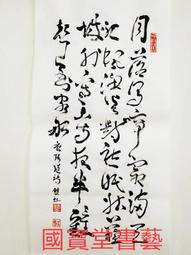 月落烏啼霜滿天
江楓漁火對愁眠姑蘇
城外寒山寺夜半鐘
聲到客船
國寶堂書藝